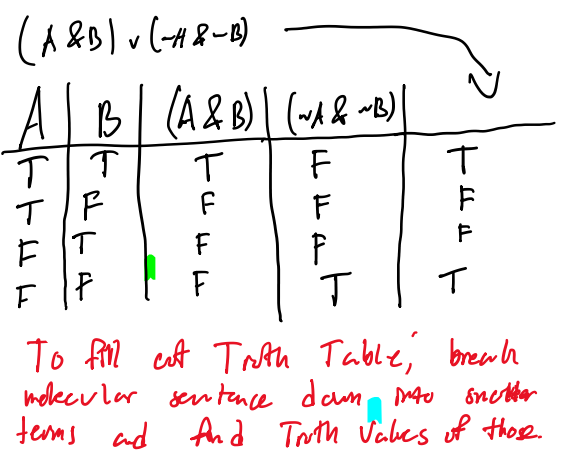 (A & B) v (~A & ~B)
A B (A & B) (~A & ~B)
T T T F T
T F F F F
F T F F F
F F F T T
To fill out Truth Table, break
molecular sentence down into smaller
terms and find Truth Values of those.